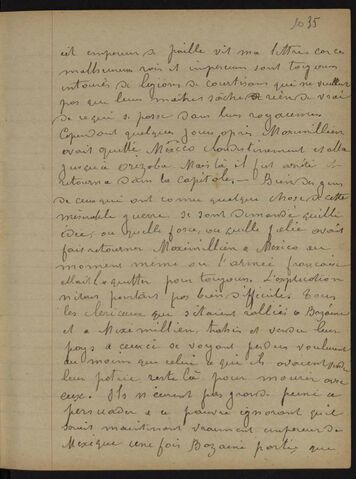 1035
cet empereur de paille vit ma lettres car ce
malheureux rois et empereurs sont toujours
entourés de legions de courtisans qui ne veullent
pas que leurs maitres sache rien de vrai
de ce qui se passe dans leurs royaumes
Cependant quelques jours après Maximillien
avait quitté Mexico clandestinement et alla
jusqu'a Orizaba Mais là il fut arrêté et
retourna dans la capitale. — Bien de gens
de ceux qui ont connu quelque chose de cette
miserable guerre se sont demandé quelle
idee, ou quelle force, ou quelle folie avait
fait retourner Maximillien a Mexico au
moment meme ou l'armée française
allait la quitter pour toujours. L'explication
n'etait pourtant pas bien difficile. Tous
les clericaux qui s'etaient ralliés a Bazaine
et a Maximillien, trahis et vendu leur
pays a ceux ci se voyant perdus voulurent
au moins que celui a qui ils avaient vendu
leur patrie reste là pour mourir avec
eux. Ils n'eurent pas grande peine a
persuader a ce pauvre ignorant qu'il
serait maintenant vraiment empereur du
Mexique une fois Bazaine partis que